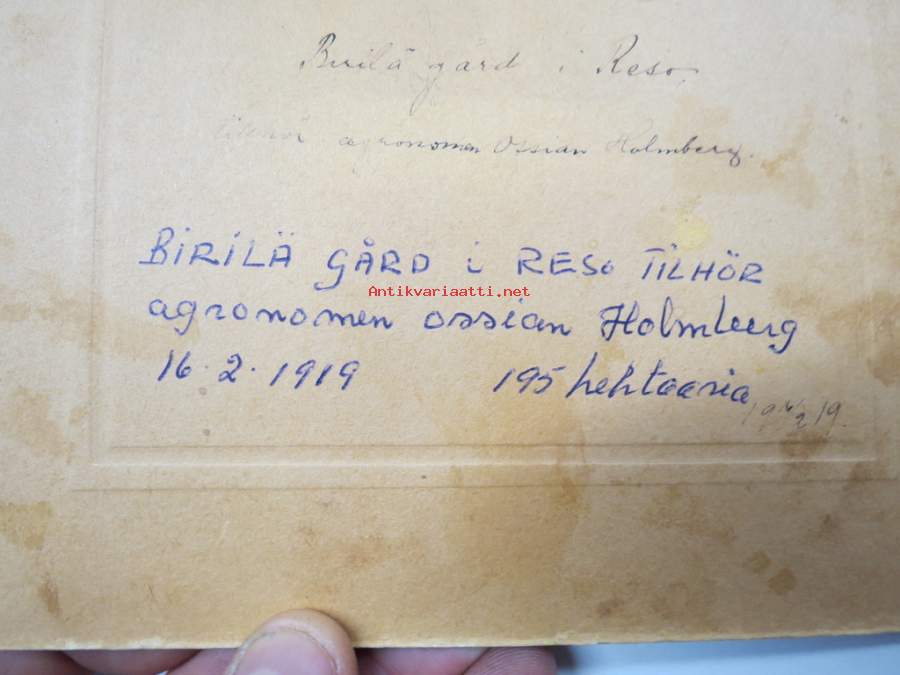 Birilä gård i Reso.
tillhör agronomen Ossian Holmberg.
BIRILÄ GÅRD i RESO TILHÖR
Antikvariaatti.net
agronomen ossian Holmberg
16.2.1919 195 hehtaaria
19 16/2 19.